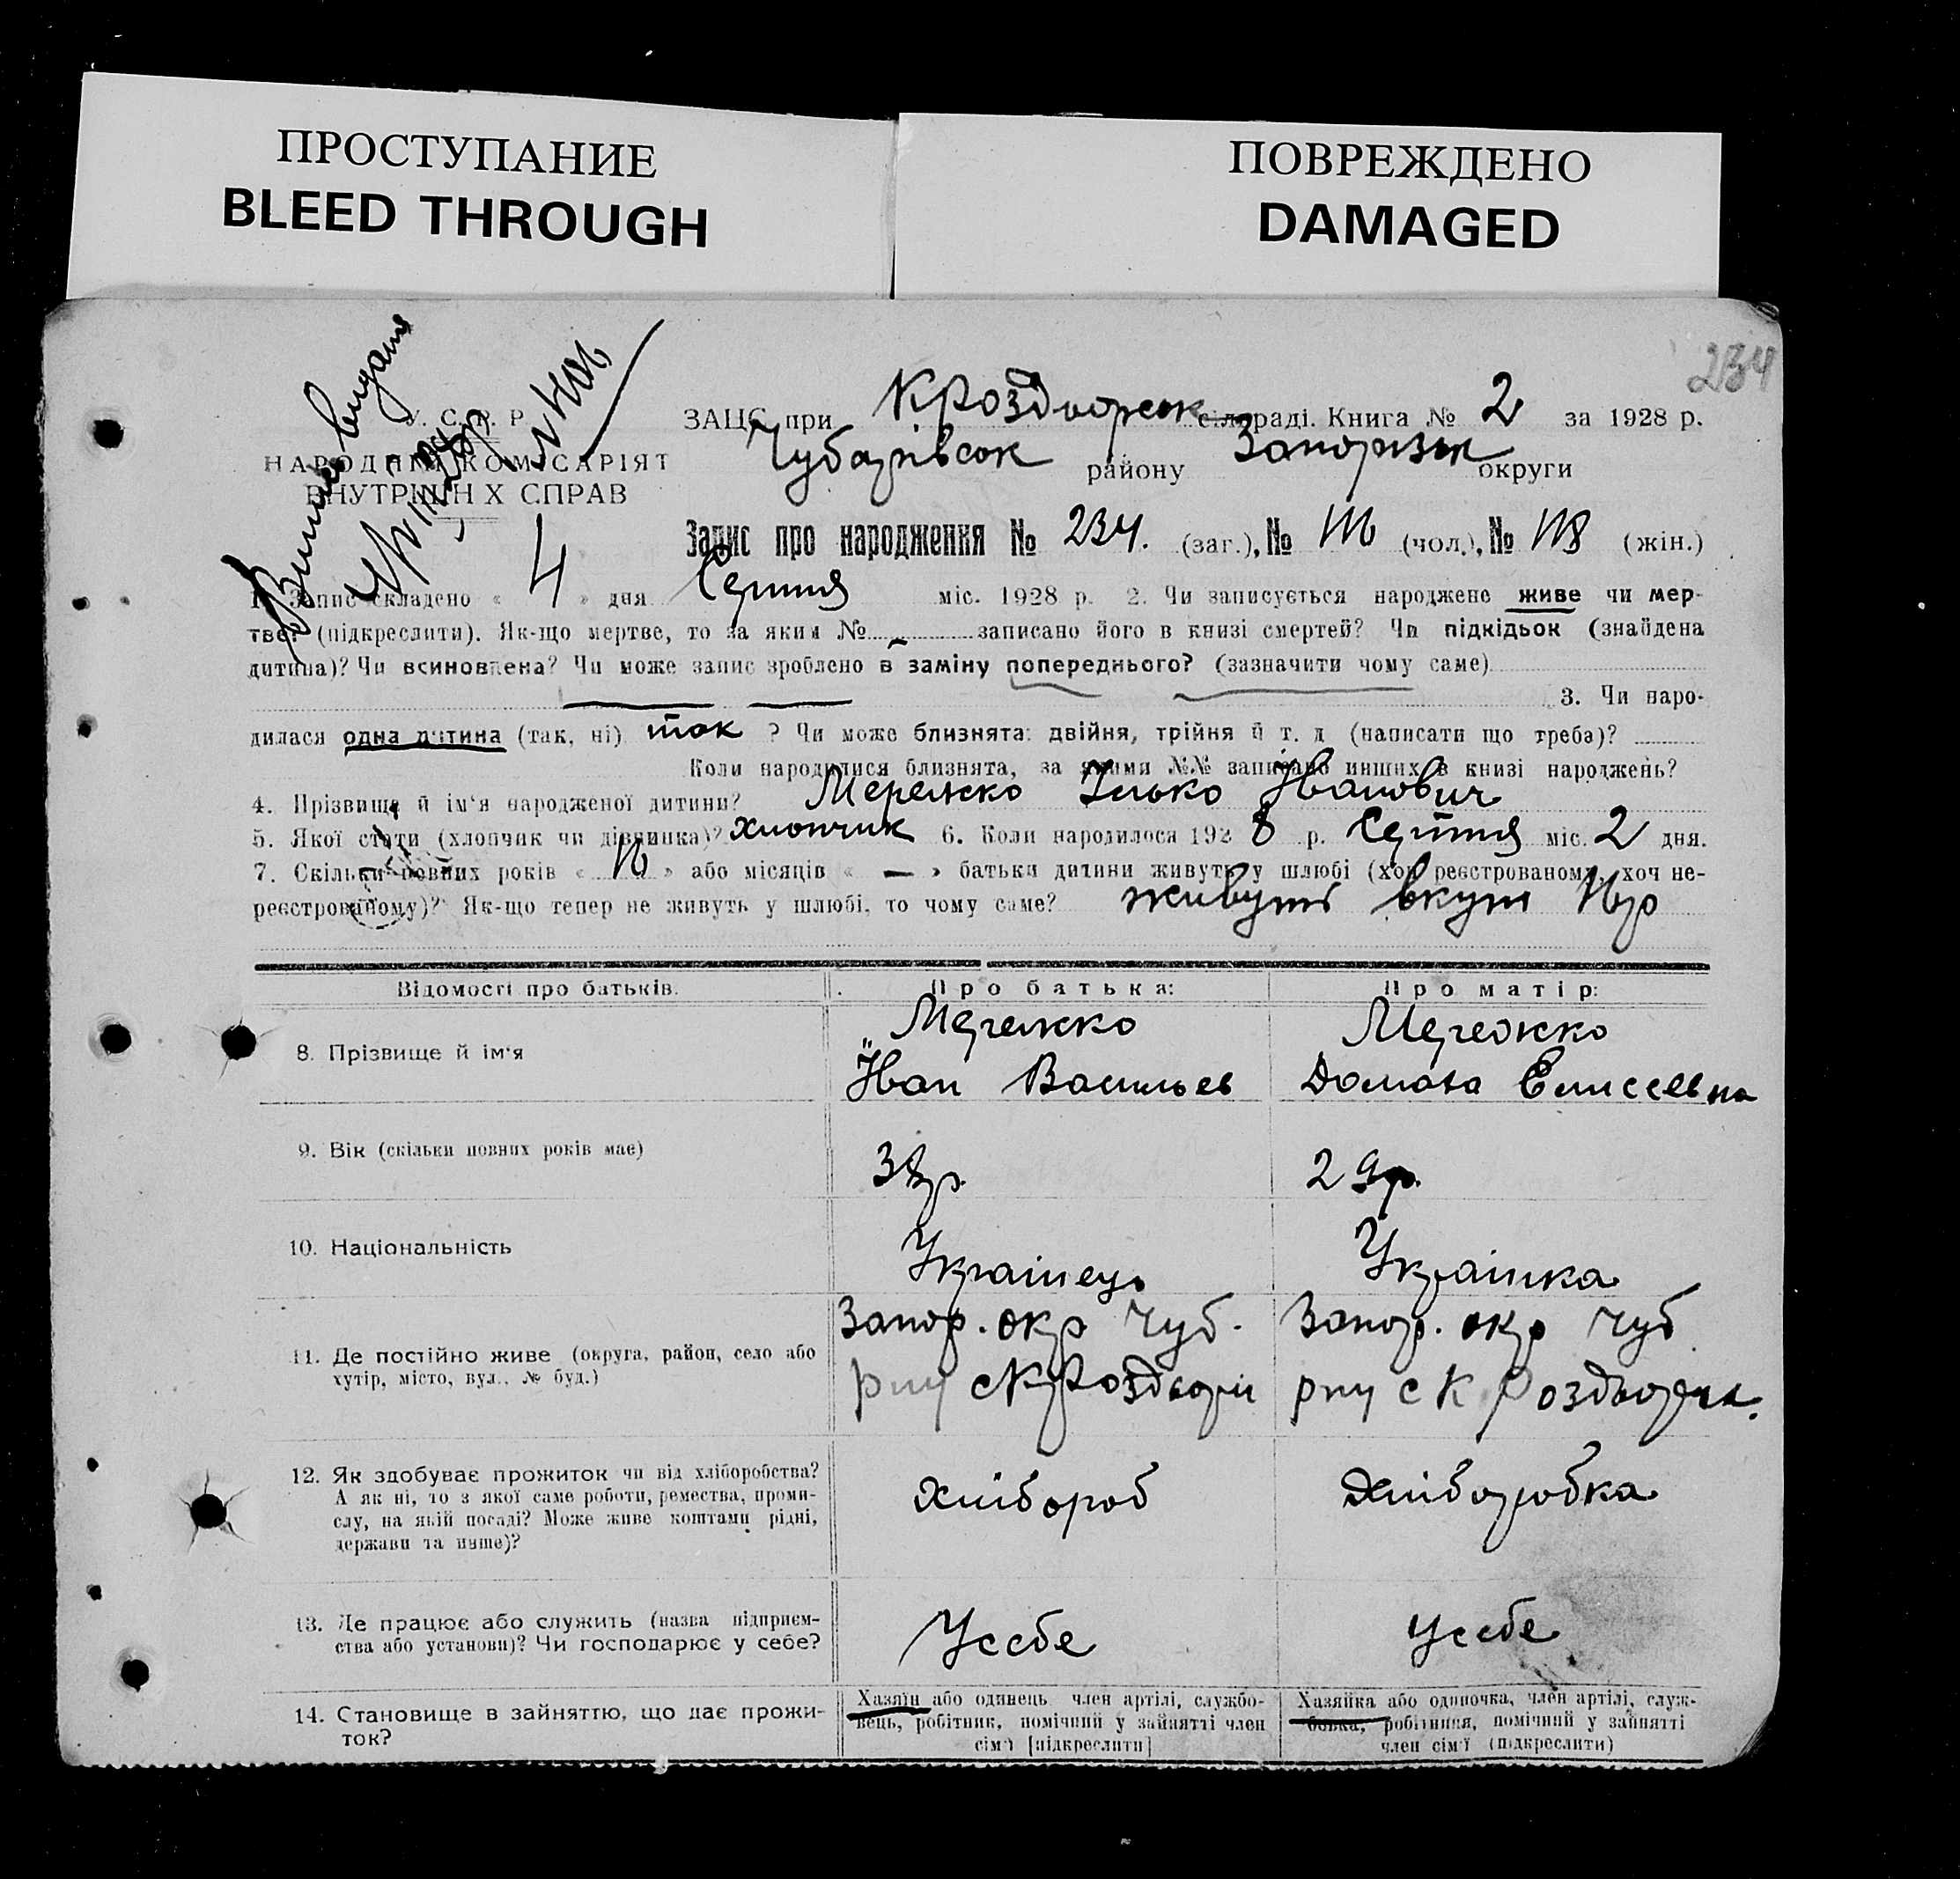 ПРОСТУПАНИЕ
BLEED THROUGH
ПОВРЕЖДЕНО
DAMAGED
234
У. С. Р. Р.
НАРОДНІЙ КОМІСАРІЯТ
ВНУТРІШНІХ СПРАВ
ЗАЦС при К Роздорськ сільраді. Книга № 2 за 1928 р.
Чубарівськ району Запорізьк округи
Запис про народження № 234. (заг.), № (чол.), № 118 (жін.)
1. Запис складено « 4 » дня Серпня міс. 1928 р. 2. Чи записується народжене живе чи мер-
тве? (підкреслити). Як-що мертве, то за яким № записано його в книзі смертей? Чи підкідьок (знайдена
дитина)? Чи всиновлена? Чи може запис зроблено в заміну попереднього? (зазначити чому саме)
3. Чи наро-
дилася одна дитина (так, ні) так ? Чи може близнята: двійня, трійня й т. д (написати що треба)?
Коли народилися близнята, за якими №№ записано инших в книзі народжень?
4. Прізвище й ім'я народженої дитини? Мережко Ілько Іванович
5. Якої стати (хлопчик чи дівчинка)? хлопчик 6. Коли народилося 192 8 р. Серпня міс. 2 дня.
7. Скільки повних років « » або місяців « — » батьки дитини живуть у шлюбі (хоч реєстрованому, хоч не-
реєстрованому)? Як-що тепер не живуть у шлюбі, то чому саме? живуть вкупі
Відомості про батьків. Про батька: Про матір:
8. Прізвище й ім'я Мережко Мережко
Іван Васильев Домаха Елисеевна
9. Вік (скільки повних років має) 38р. 29р.
10. Національність Українець Українка
11. Де постійно живе (округа, район, село або Запор. окр Чуб. Запор. окр Чуб
хутір, місто, вул., № буд.) рну с К Роздори рну с К Роздорах.
12. Як здобуває прожиток чи від хліборобства? Хлібороб Хліборобка
А як ні, то з якої саме роботи, ремества, проми-
слу, на якій посаді? Може живе коштами рідні,
держави та инше)?
13. Де працює або служить (назва підприєм- Усебе Усебе
ства або установи)? Чи господарює у себе?
14. Становище в зайняттю, що дає прожи- Хазяїн або одинець член артілі, службо- Хазяйка або одиночка, член артілі, служ-
ток? вець, робітник, помічний у зайнятті член бовка, робітниця, помічний у зайнятті
сім'ї [підкреслити] член сім'ї (підкреслити)